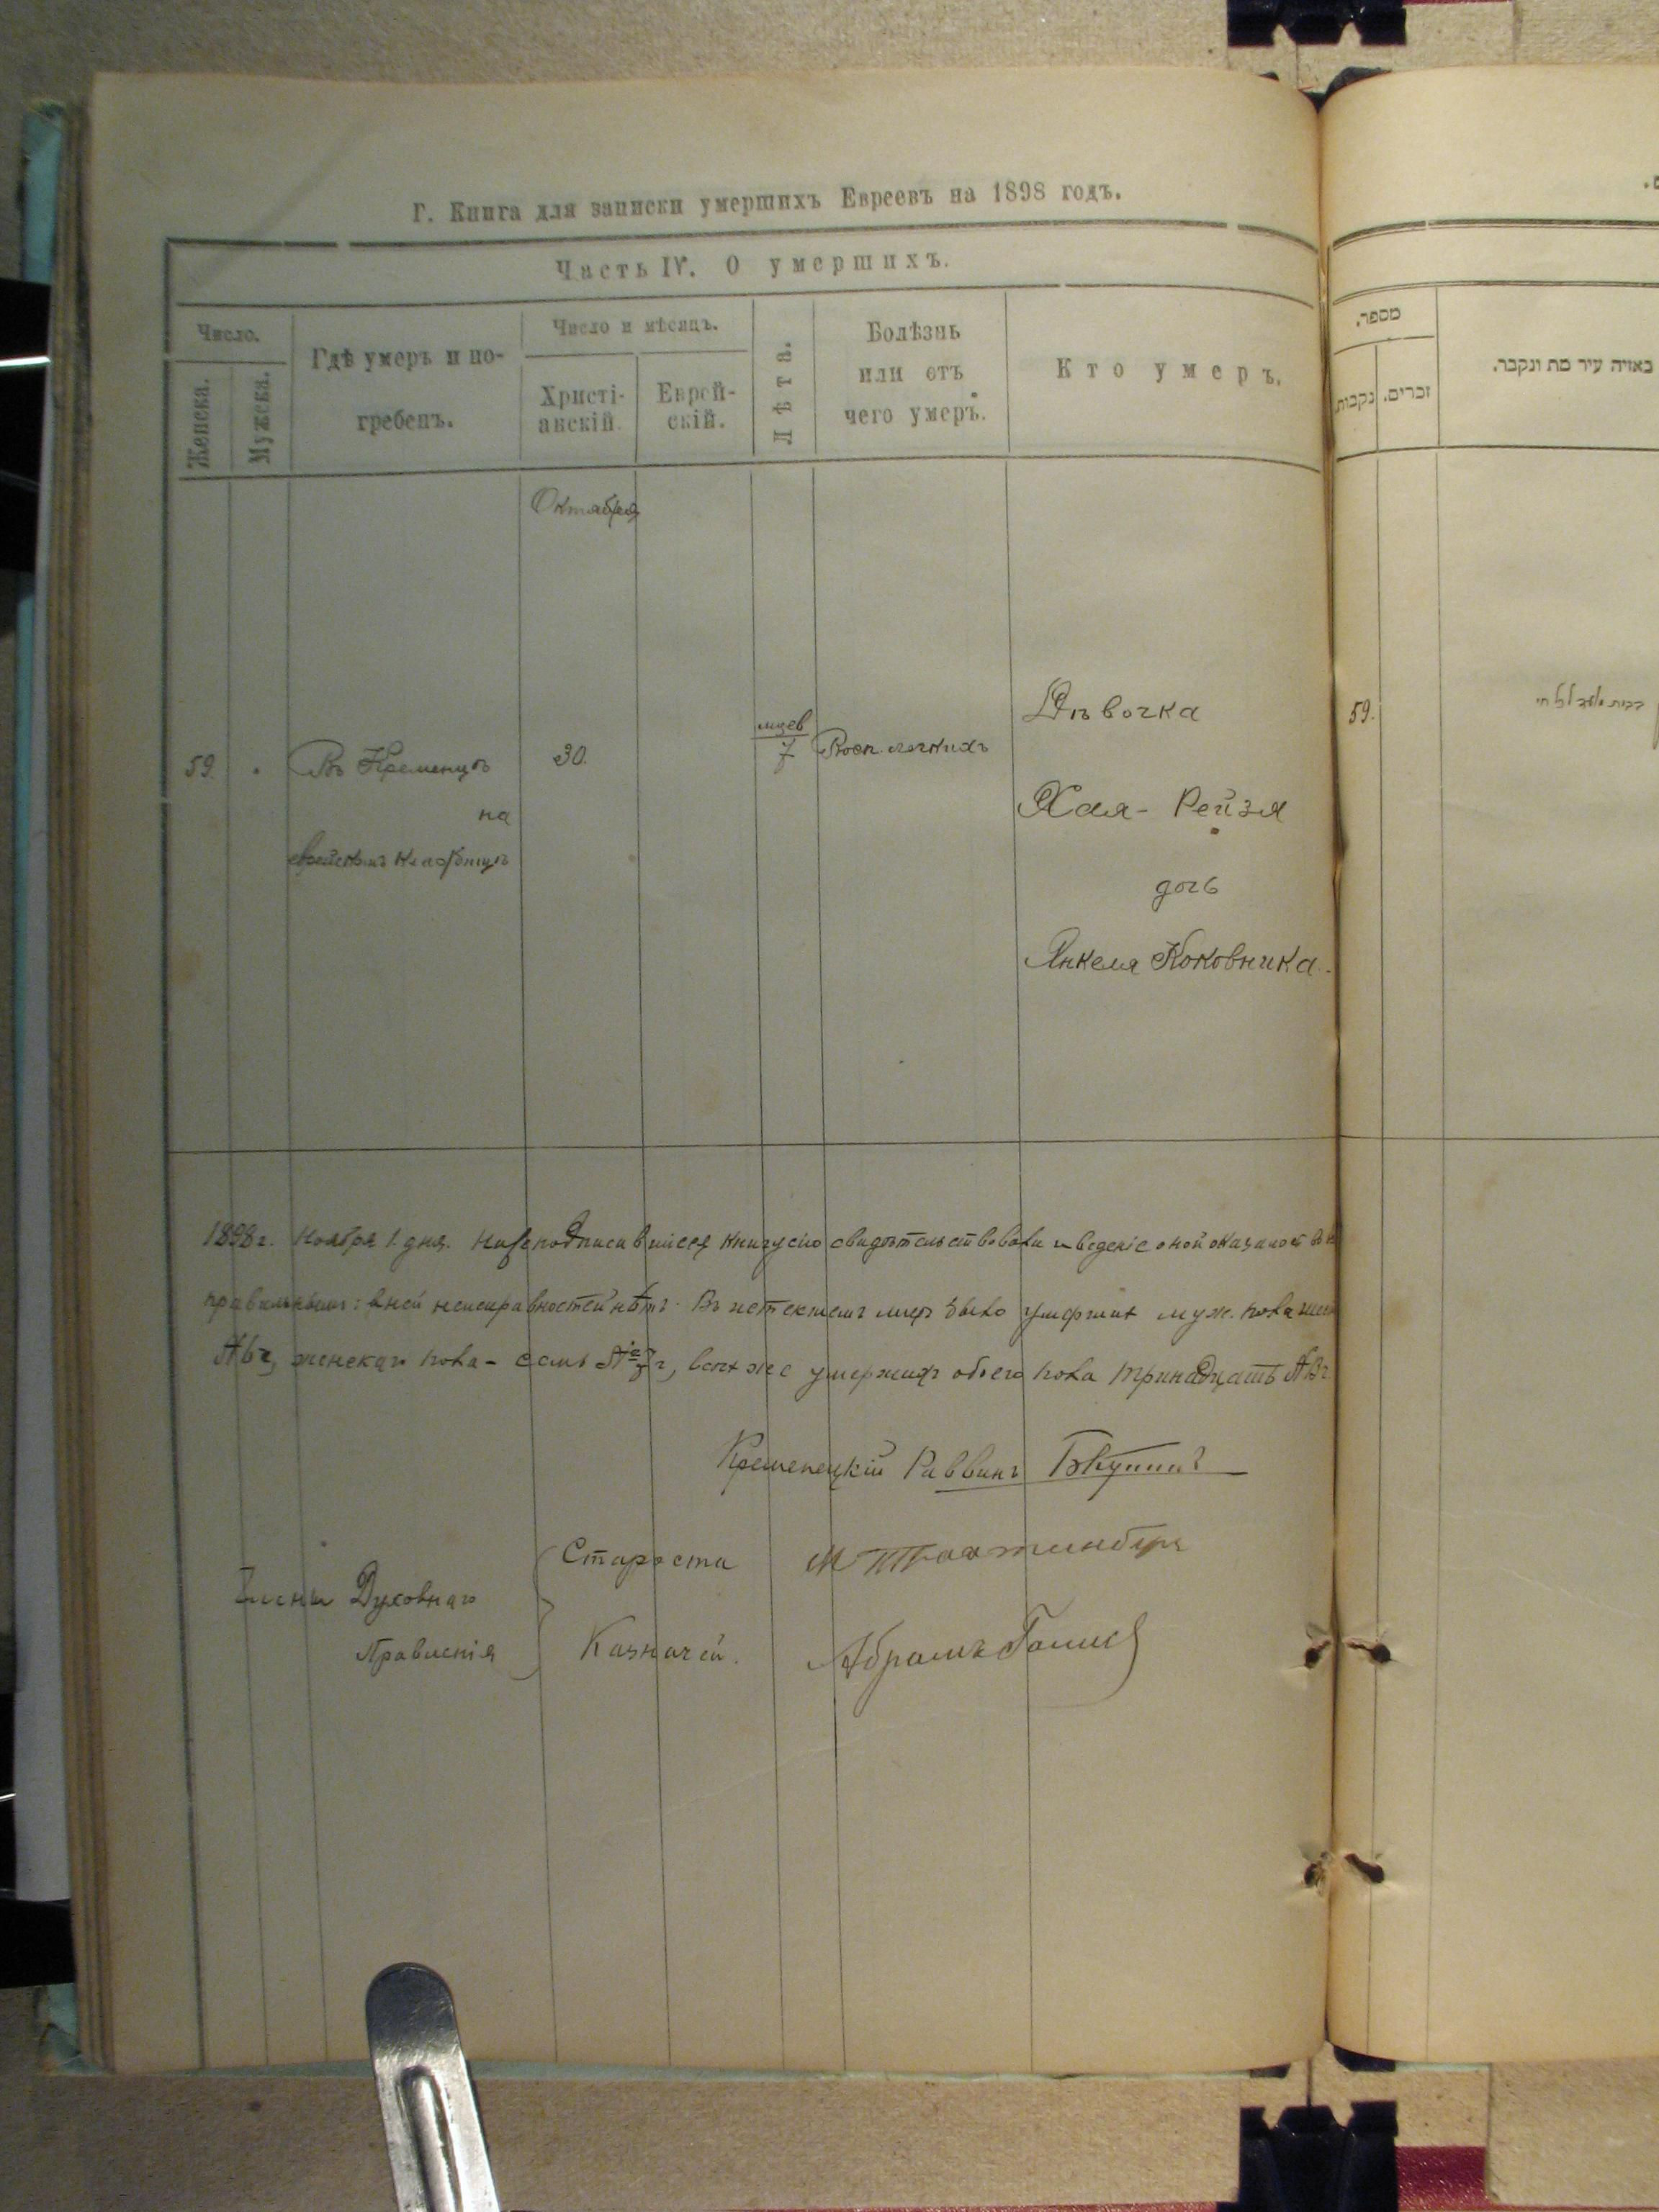 Г. Книга для записки умершихъ Евреевъ на 1898 годъ.
Часть IV. О умершихъ.
Число.
Женска.
Мужска.
Гдѣ умеръ и по-
гребенъ.
Число и мѣсяцъ.
Христі-
анскій.
Еврей-
скій.
Лѣта.
Болѣзнь
или отъ
чего умеръ.
Кто умеръ.
Октября
59.
Въ Кременцѣ
на
еврейскомъ кладбищѣ
30.
мцев
7
Восп. легкихъ
Дѣвочка
Хая-Рейзя
дочь
Янкеля Коковника.
1898 г. Ноября 1. дня. Нижеподписавшиеся книгу сію свидѣтельствовали и веденіе оной оказалось
правильнымъ: в ней неисправностей нѣтъ. Въ истекшем мцѣ было умерших муж. пола
женскаго пола - семь всѣх же умерших обоего пола тринадцать
Кременецкій Раввинъ
Члены Духовнаго
Правленія
Староста
Казначей.
Абрамъ
מספר.
נקבות.
זכרים.
באיזה עיר מת ונקבר.
59.